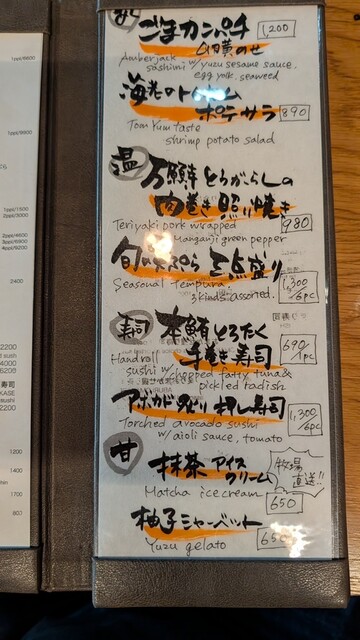 1ppl/6600
1ppl/8800
1ppl/1500
2ppl/3000
2ppl/4600
3ppl/6900
4ppl/9200
2400
2200
4000
6200
寿司
KASE
sushi
2200
1200
1400
1700
800
ごまカンパチ 1,200
卵黄のせ
Amberjack
sashimi w/ yuzu sesame sauce.
egg york. seaweed
海老のトムヤム
ポテサラ 890
Tom Yum taste
shrimp potato salad
温 万願寺とうがらしの
肉巻き照り焼き
Teriyaki pork wrapped 980
Manganji green pepper
旬の天ぷら 三点盛り
Seasonal tempura. 1,300/6pc
3kinds assorted.
寿司 本鮪とろたく
手巻き寿司 690/1pc
Handroll
sushi w/ chopped fatty tuna &
pickled radish
アボカド炙り押し寿司
Torched avocado sushi 1,300/6pc
w/ aioli sauce, tomato
甘 抹茶アイス
クリーム
牧場
直送!!
Matcha ice cream 650
柚子シャーベット
Yuzu gelato 650